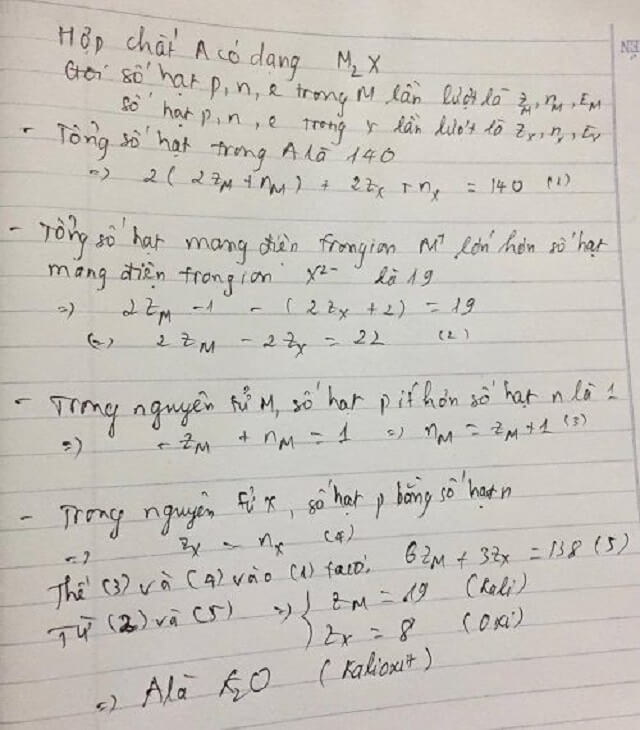 Hợp chất A có dạng M₂X
Gọi số hạt p, n, e trong M lần lượt là Z_M, n_M, E_M
số hạt p, n, e trong x lần lượt là Z_x, n_x, E_x
- Tổng số hạt trong A là 140
=> 2(2Z_M + n_M) + 2Z_x + n_x = 140 (1)
- Tổng số hạt mang điện trong ion M⁺ lớn hơn số hạt
mang điện trong ion X²⁻ là 19
=> 2Z_M - 1 - (2Z_x + 2) = 19
(=) 2Z_M - 2Z_x = 22 (2)
- Trong nguyên tử M, số hạt p ít hơn số hạt n là 1
=> - Z_M + n_M = 1 => n_M = Z_M + 1 (3)
- Trong nguyên tử X, số hạt p bằng số hạt n
=> Z_x = n_x (4)
Thế (3) và (4) vào (1) ta có: 6Z_M + 3Z_x = 138 (5)
Từ (2) và (5) => { Z_M = 19 (Kali)
Z_x = 8 (Oxi)
=> A là K₂O (Kalioxit)